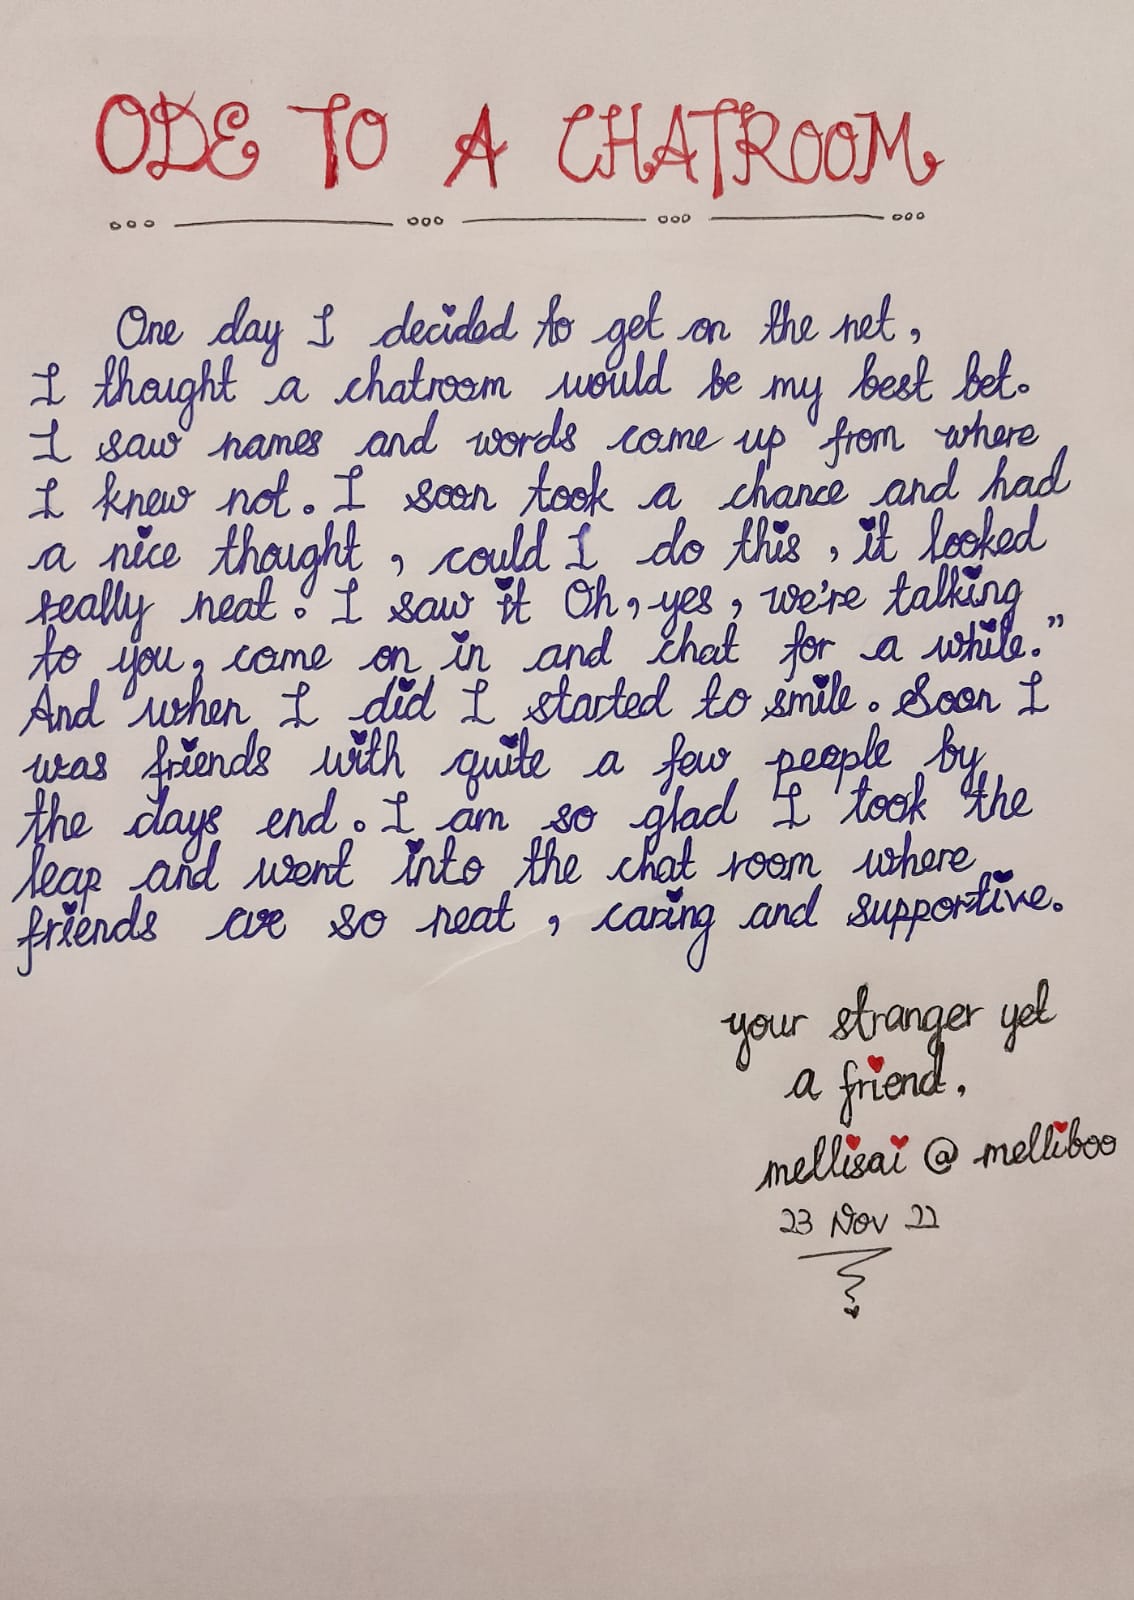 ODE TO A CHATROOM
One day I decided to get on the net,
I thought a chatroom would be my best bet.
I saw names and words come up from where
I knew not. I soon took a chance and had
a nice thought, could I do this, it looked
really neat. I saw it Oh, yes, we're talking
to you, come on in and chat for a while."
And when I did I started to smile. Soon I
was friends with quite a few people by
the days end. I am so glad I took the
leap and went into the chat room where
friends are so neat, caring and supportive.
your stranger yet
a friend,
mellisai @ melliboo
23 Nov 22